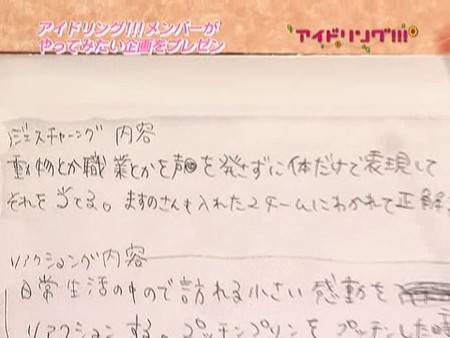 アイドリング!!!メンバーが
やってみたい企画をプレゼン
アイドリング!!!
ジェスチャーング 内容
動物とか職業とかを声を発さずに体だけで表現して
それを当てる。ますのさんも入れた2チームにわかれて正解
リアクションが内容
日常生活の中ので訪れる小さい感動を
リアクションする。プッチンプリンをプッチンした時